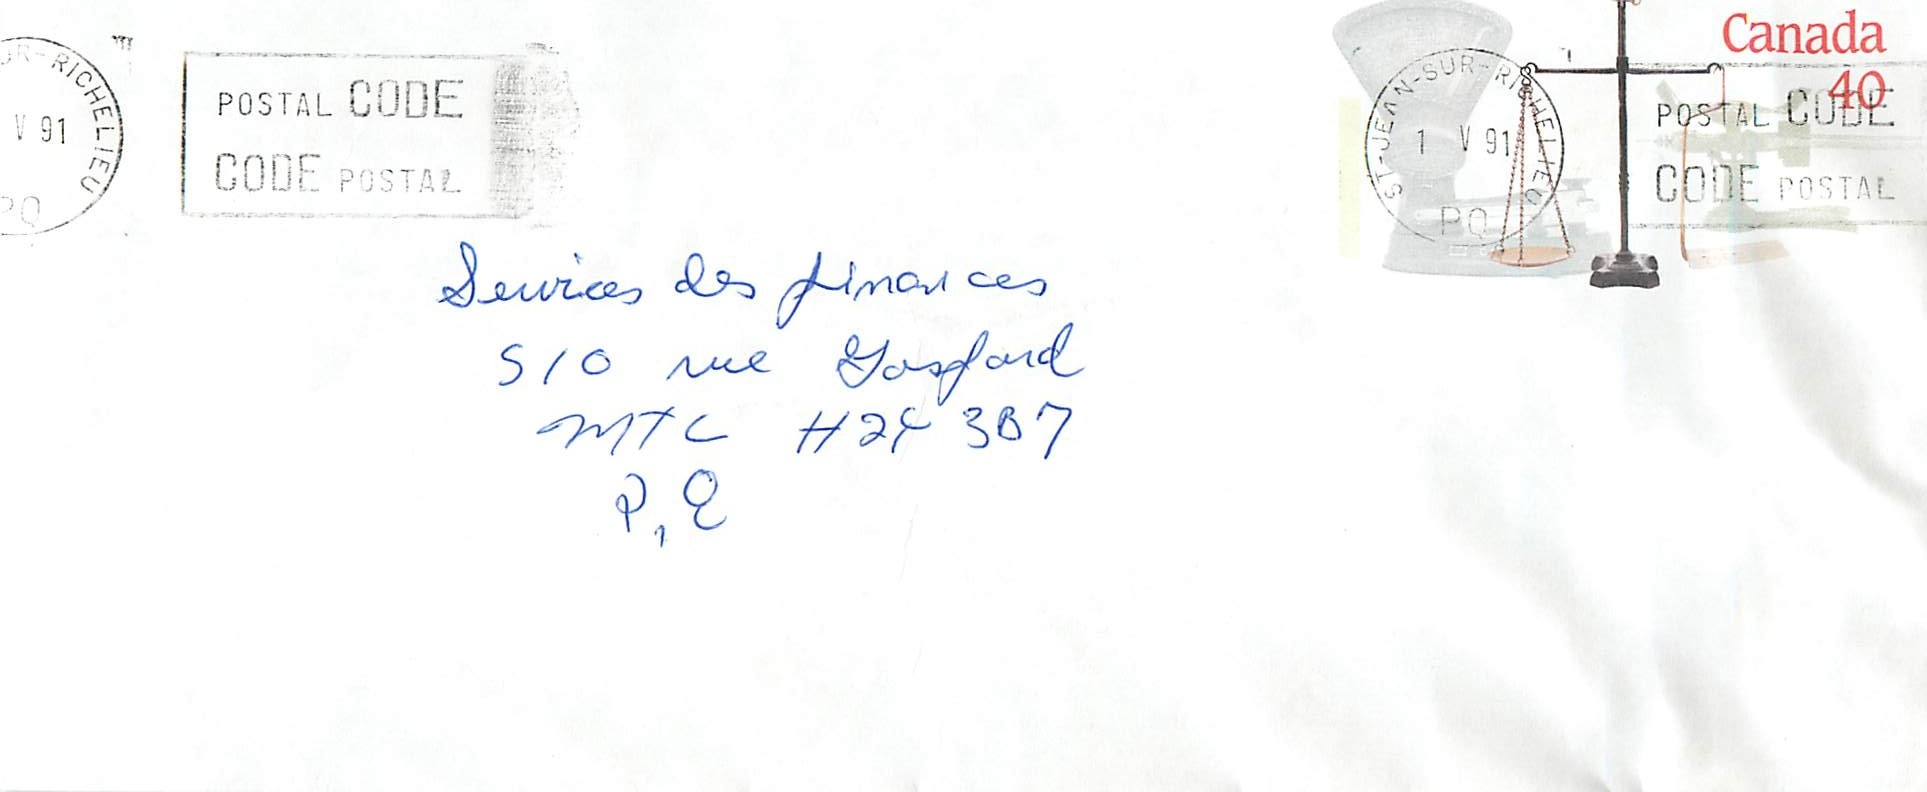 UR-RICHELIEU
V 91
PQ
POSTAL CODE
CODE POSTAL
Canada
40
ST-JEAN-SUR-RICHELIEU
1 V 91
PQ
POSTAL CODE
CODE POSTAL
Services des finances
510 rue Gosford
MTL H2Y 3B7
P,Q